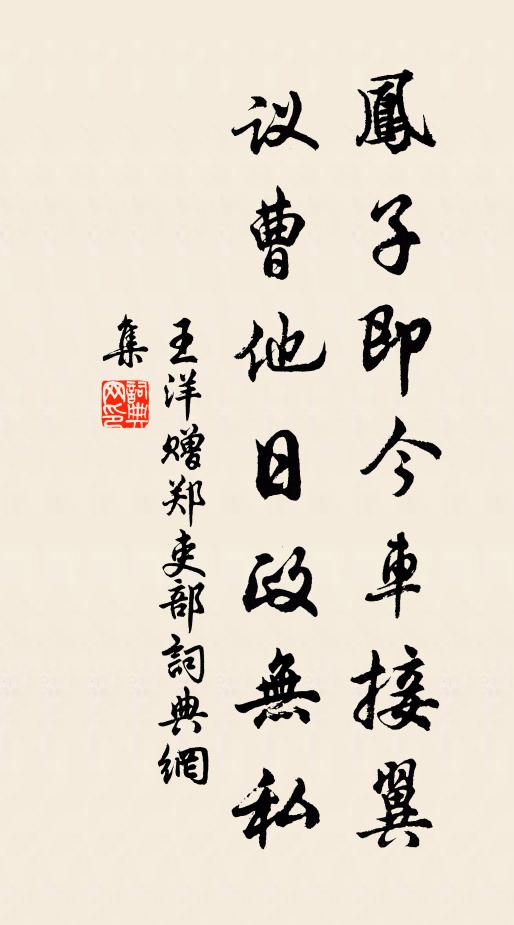 鳳子即今車接翼
议曹他日政無私
王洋赠郑吏部詞典網
集
詞典网印